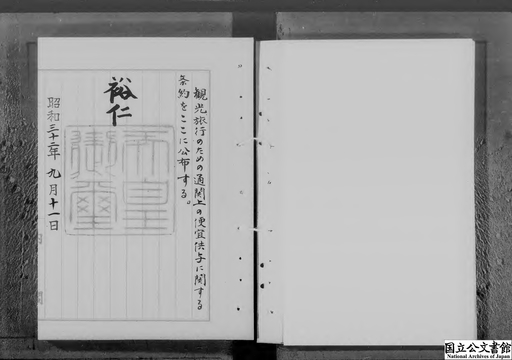 観光旅行のための通関上の便宜供与に関する
条約をここに公布する。
裕仁
天皇御璽
昭和三十二年九月十一日
国立公文書館
National Archives of Japan